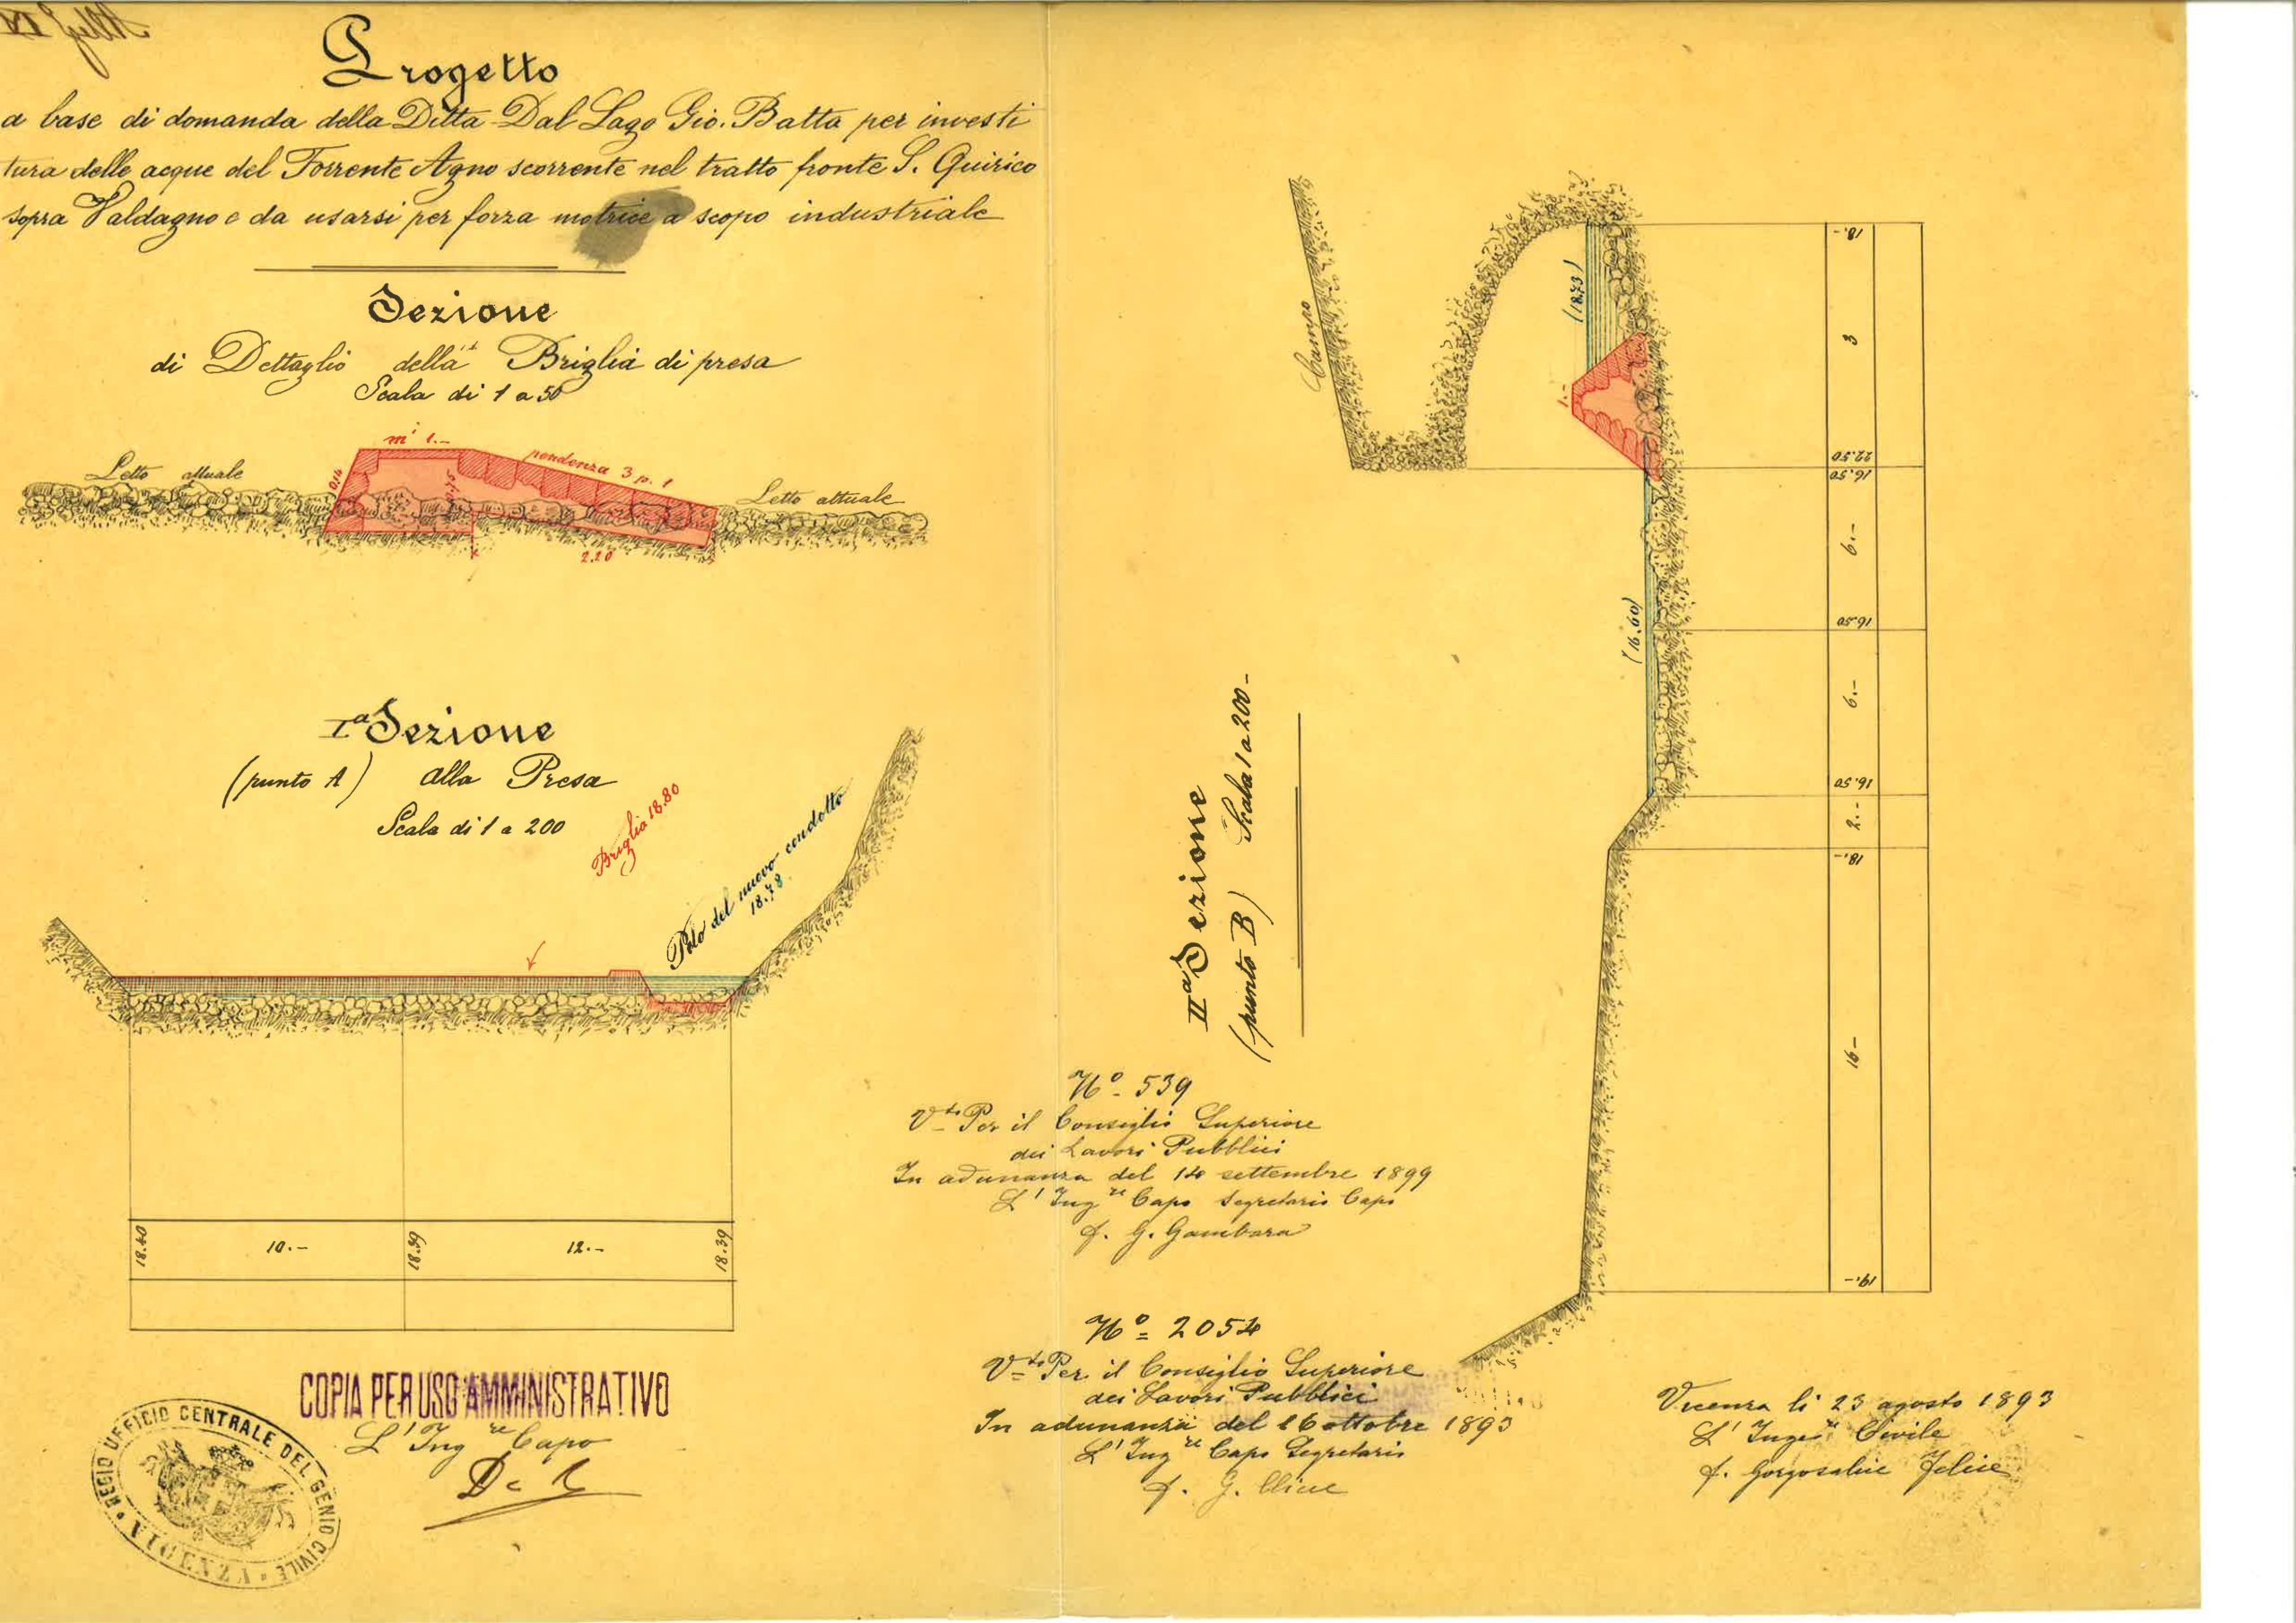 Progetto
a base di domanda della Ditta Dal Lago Gio. Batta per investi
tura delle acque del Torrente Agno scorrente nel tratto fronte S. Quirico
sopra Valdagno e da usarsi per forza motrice a scopo industriale
Sezione
di Dettaglio della Briglia di presa
Scala di 1 a 50
Letto attuale
mⁱ 1.–
pendenza 3 p. 1
Letto attuale
2.20
Iª Sezione
(punto A) alla Presa
Scala di 1 a 200
Briglia 18.80
Pelo del nuovo condotto
18.78
18.40
10.–
18.39
12.–
18.39
COPIA PER USO AMMINISTRATIVO
L'Ingʳᵉ Capo
REGIO UFFICIO CENTRALE DEL GENIO CIVILE
VICENZA
IIª Sezione
(punto B) Scala 1 a 200–
Campo
(18.73)
1.–
(16.60)
18.–
3
22.50
16.50
6.–
16.50
6.–
16.50
2.–
18.–
16–
19.–
Nº 539
Vᵗᵒ Per il Consiglio Superiore
dei Lavori Pubblici
In adunanza del 14 settembre 1899
L'Ingʳᵉ Capo Segretario Capo
f. G. Gambara
Nº 2054
Vᵗᵒ Per il Consiglio Superiore
dei Lavori Pubblici
In adunanza del 16 ottobre 1893
L'Ingʳᵉ Capo Segretario
f. G.
Vicenza li 23 agosto 1893
L'Ingeʳᵉ Civile
f. Felice